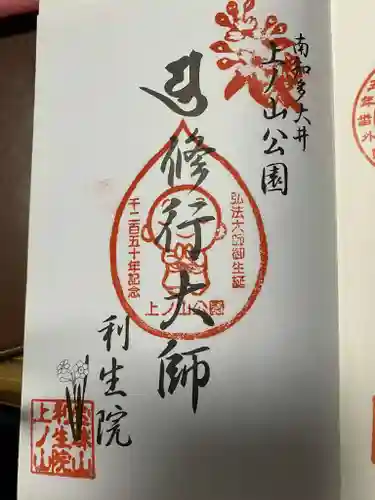 南知多大井
上ノ山公園
修行大師
弘法大師御生誕
千二百五十年記念
上ノ山公園
利生院
利生院
上ノ山
年番外